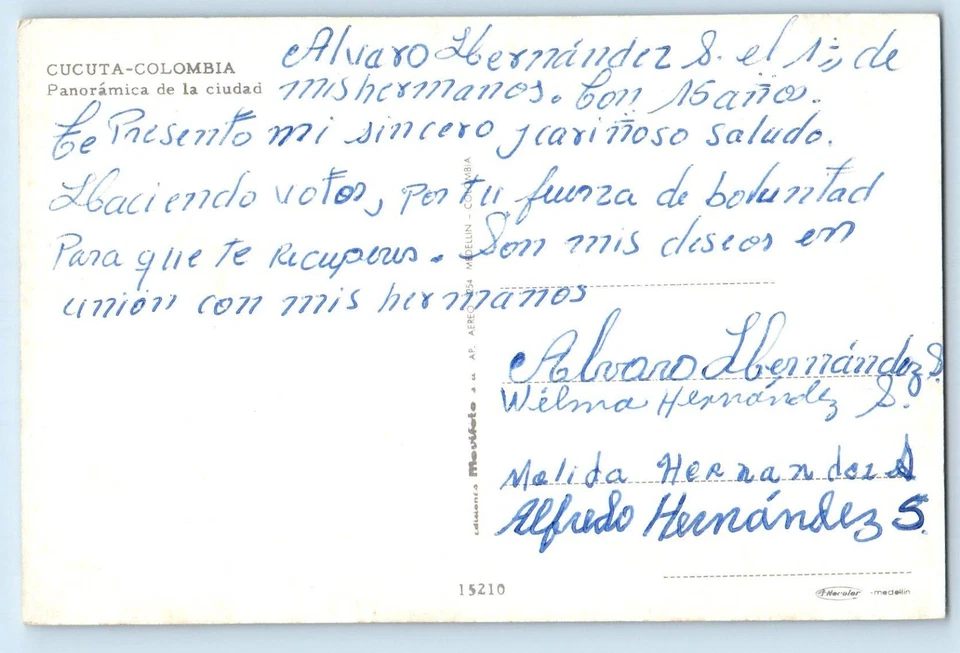 CUCUTA-COLOMBIA
Panorámica de la ciudad
Alvaro Hernández S. el 1º, de
mis hermanos. Con 15 años.
Te Presento mi sincero y cariñoso saludo.
Haciendo votos, por tu fuerza de boluntad
Para que te recuperes. Son mis deseos en
unión con mis hermanos
Alvaro Hernández S.
Wilma Hernández S.
Melida Hernandez S
Alfredo Hernández S.
Ediciones Movifoto s a AP. AEREO 1254 MEDELLIN - COLOMBIA
15210
-medellin